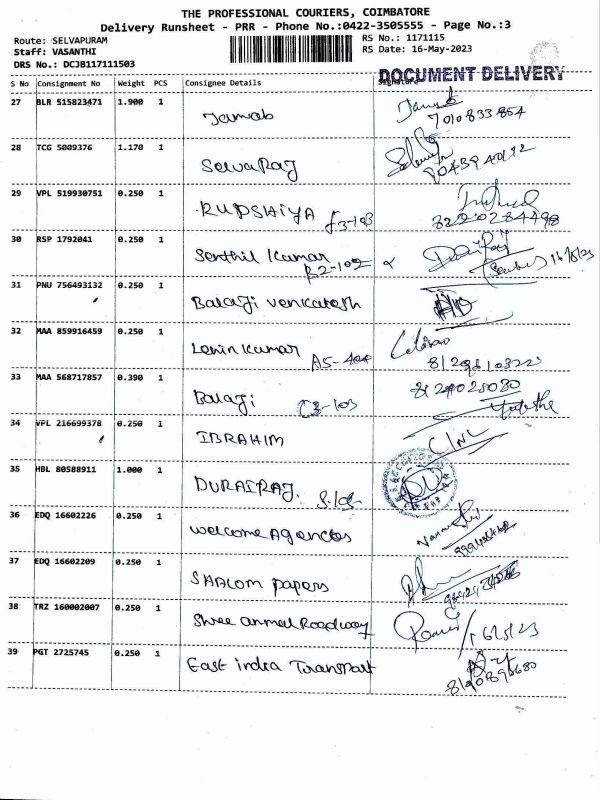 THE PROFESSIONAL COURIERS, COIMBATORE
Delivery Runsheet - PRR - Phone No.:0422-3505555 - Page No.:3
Route: SELVAPURAM RS No.: 1171115
Staff: VASANTHI RS Date: 16-May-2023
DRS No.: DCJB117111503
DOCUMENT DELIVERY
S No Consignment No Weight PCS Consignee Details Signature
27 BLR 515823471 1.900 1 Jamab
7010833854
28 TCG 5009376 1.170 1 SelvaRaj
29 VPL 519930751 0.250 1 RUPSHIYA F3-103
8220284498
30 RSP 1792041 0.250 1 Senthil Kumar
B2-102 16/5/23
31 PNU 756493132 0.250 1 Balaji venkatesh
32 MAA 859916459 0.250 1 Lenin Kumar
A5-404
33 MAA 568717857 0.390 1 Balaji C3-103
34 VPL 216699378 0.250 1 IBRAHIM
35 HBL 80588911 1.000 1 DURAIRAJ.
36 EDQ 16602226 0.250 1 Welcome Agencies
37 EDQ 16602209 0.250 1 SHALOM papers
38 TRZ 160002007 0.250 1 Shree anmol Roadway
16/5/23
39 PGT 2725745 0.250 1 East india Transport